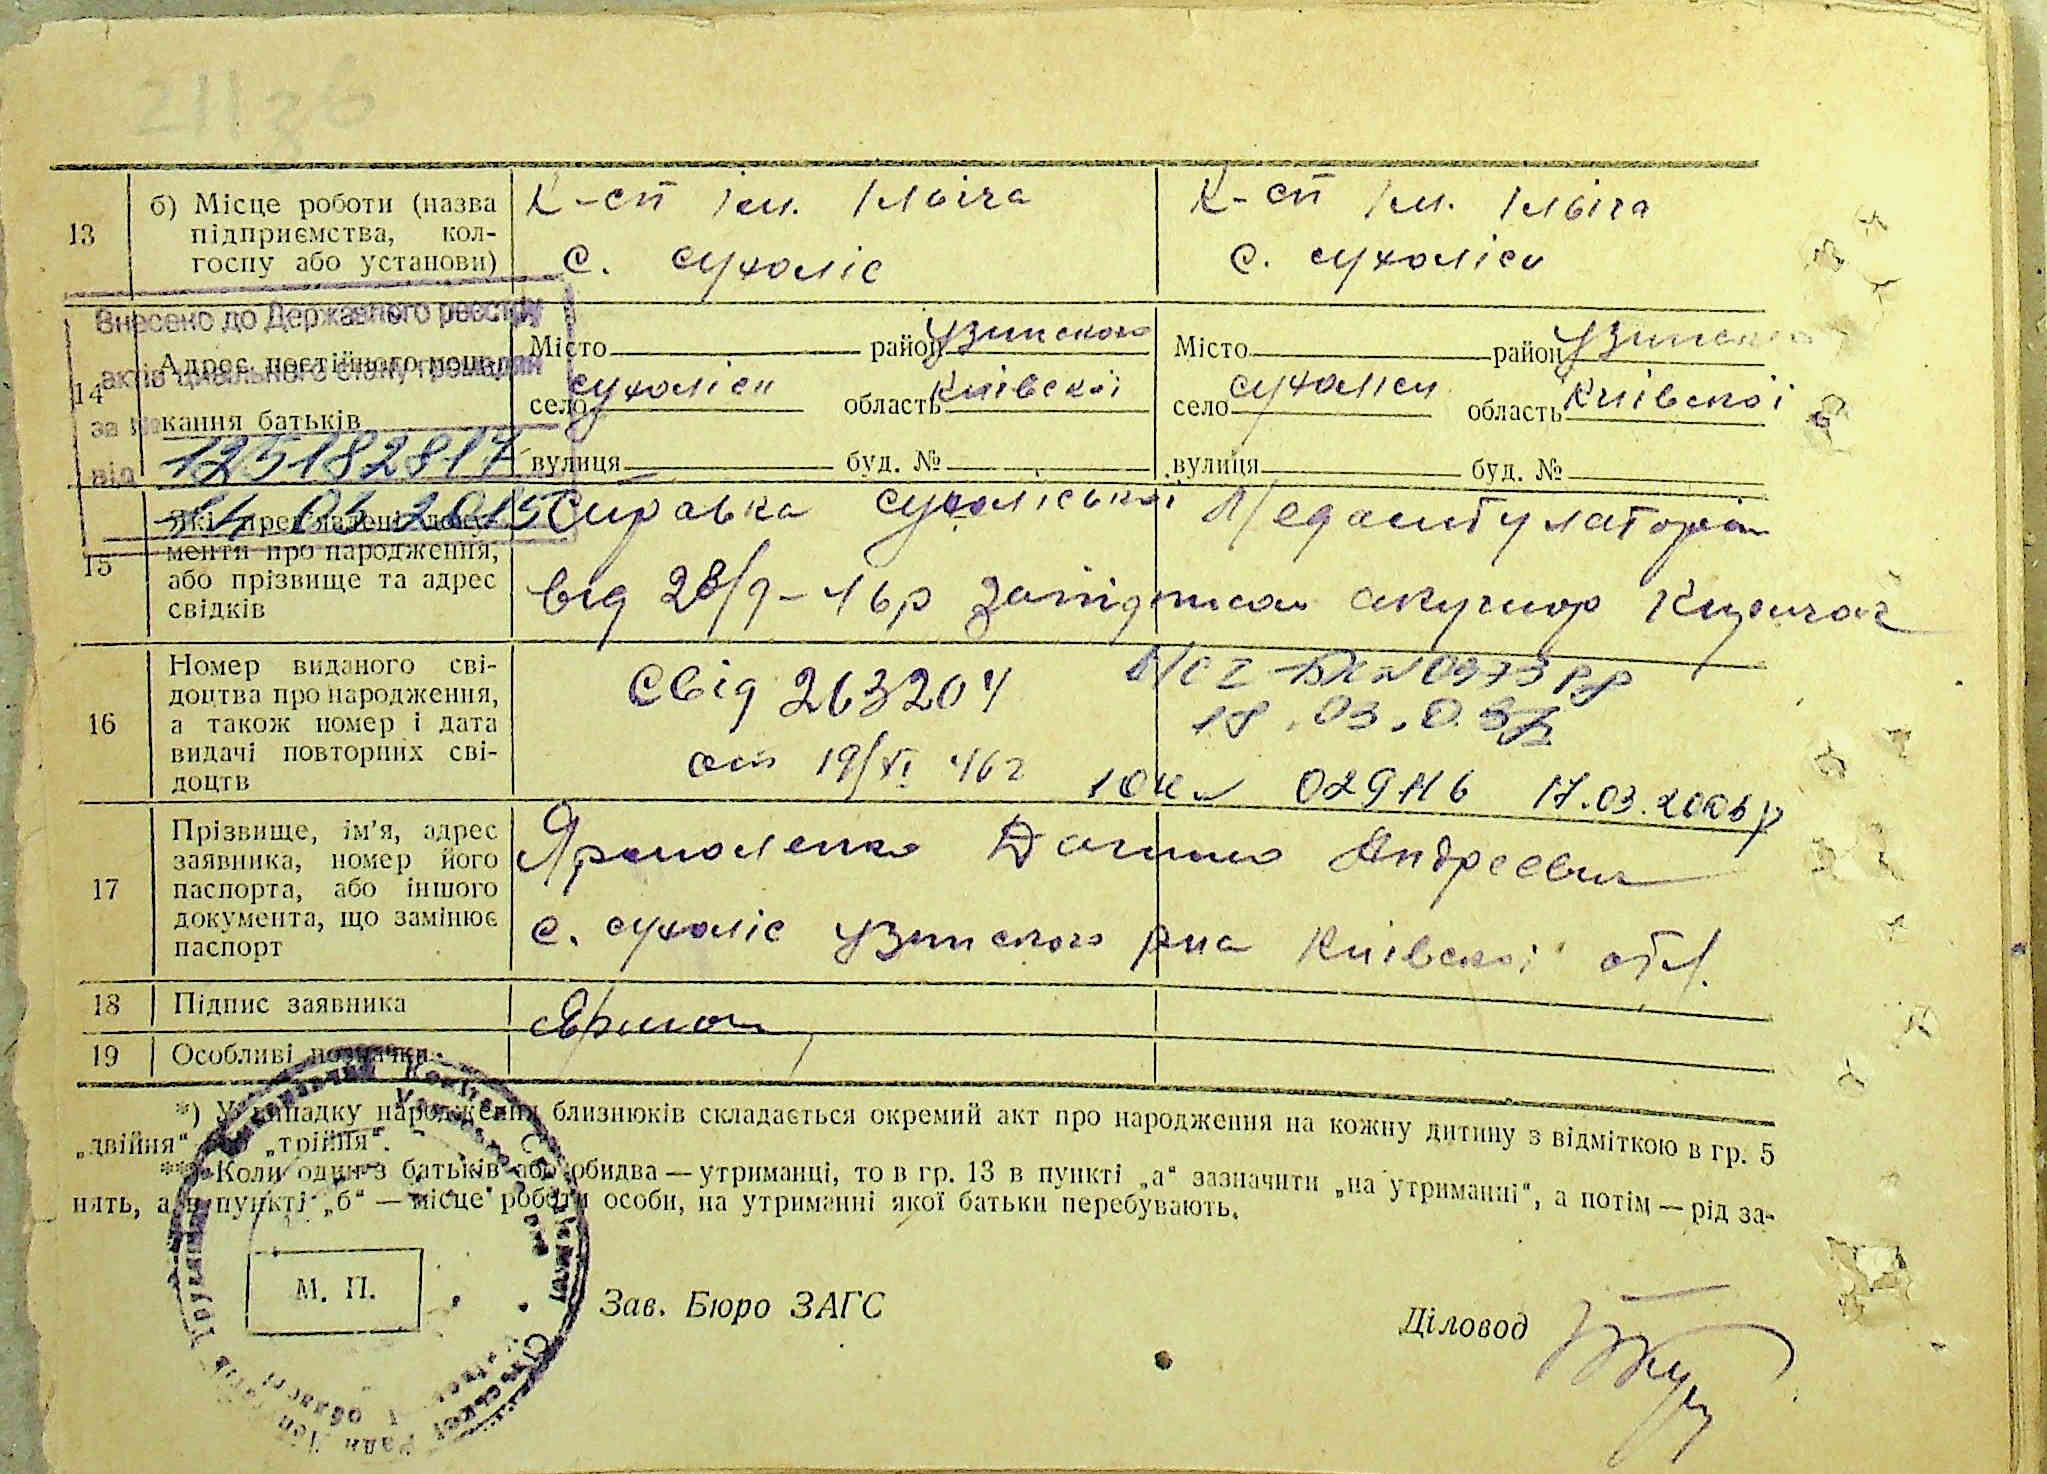 13 б) Місце роботи (назва підприємства, кол-госпу або установи)
К-сп ім. Ілліча
с. Сухоліс
К-сп ім. Ілліча
с. Сухоліси
Внесено до Державного реєстру
актів цивільного стану громадян
за №
від 125182817
14.03.2015
14 Адрес постійного мешкання батьків
Місто район Узинського
село Сухоліси область Київської
вулиця буд. №
Місто район Узинського
село Сухоліси область Київської
вулиця буд. №
15 Які пред'явлені документи про народження, або прізвище та адрес свідків
Справка Сухоліської Медамбулаторії
від 28/9-46р за підписом акушор
16 Номер виданого сві-
доцтва про народження,
а також номер і дата
видачі повторних сві-
доцтв
Свід 263204
от 19/XI 46г
18.03.
029116 17.03.2006р
17 Прізвище, ім'я, адрес
заявника, номер його
паспорта, або іншого
документа, що замінює
паспорт
Ярмоленко Данило Андреевич
с. Сухоліс Узинского р-на Київської обл.
18 Підпис заявника
19 Особливі позначки
*) У випадку народження близнюків складається окремий акт про народження на кожну дитину з відміткою в гр. 5
„двійня“ „трійня“.
**) Коли один з батьків або обидва — утриманці, то в гр. 13 в пункті „а“ зазначити „на утриманні“, а потім — рід за-
нять, а в пункті „б“ — місце роботи особи, на утриманні якої батьки перебувають.
М. П.
Зав. Бюро ЗАГС
Діловод